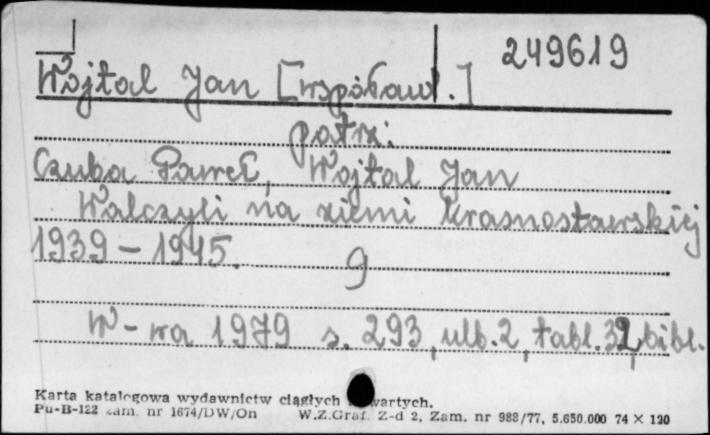 249619
Wojtal Jan [współaut.]
patrz:
Czuba Paweł, Wojtal Jan
Walczyli na ziemi krasnostawskiej
1939-1945. g
W-wa 1979 s. 293, ulb. 2, tabl. 32, bibl.
Karta katalogowa wydawnictw ciągłych wartych.
Pu-B-122 zam. nr 1674/DW/On W.Z.Graf. Z-d 2, Zam. nr 988/77, 5.650.000 74 × 120